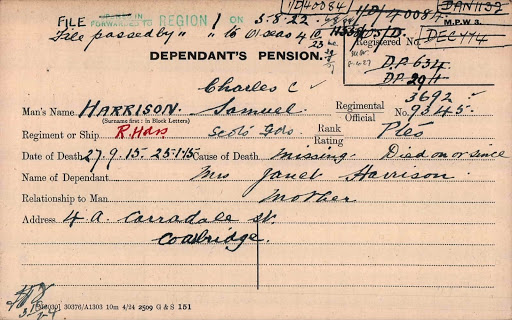 1/D40084/
1/D/40084.
DAN1132
FILE
FORWARDED TO REGION 1 ON 5.8.22.
M.P.W.3.
File passed by " " to O'seas 4/10/23
D5/D.
DEC 174
Registered No.
DEPENDANT'S PENSION.
D.P. 634
D.P. 29/1
Charles C
3692
Man's Name HARRISON. Samuel. Regimental Official No. 9345.
(Surname first: in Block Letters)
Regiment or Ship R. Hdrs Scots Gds. Rank Rating Ptes
Date of Death 27.9.15-25.1.15 Cause of Death missing. Died on or since
Name of Dependant Mrs Janet Harrison
Relationship to Man mother
Address 4A. Corradale St.
Coatbridge.
30376/A1303 10m 4/24 2509 G & S 151